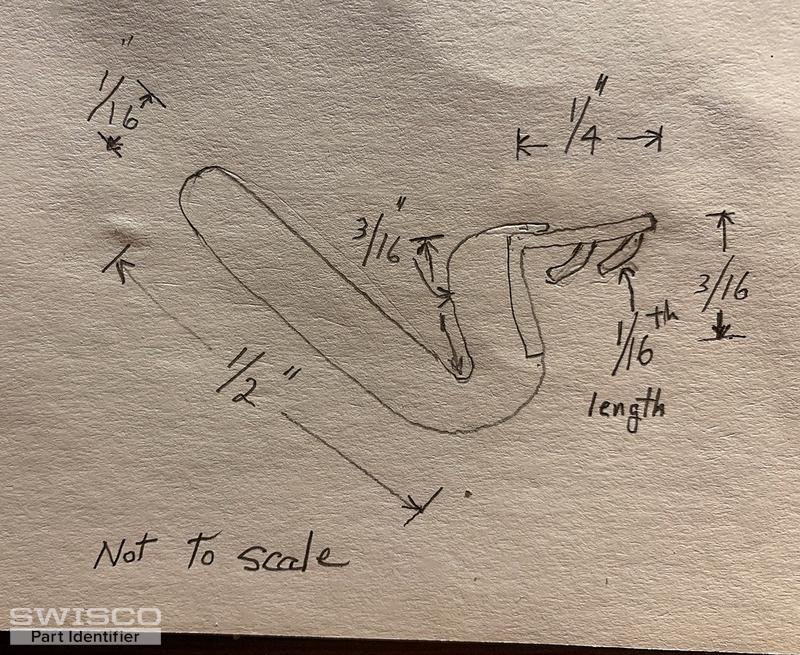 1/16"
1/4"
3/16"
3/16
1/16th
length
1/2"
Not To scale
SWISCO
Part Identifier